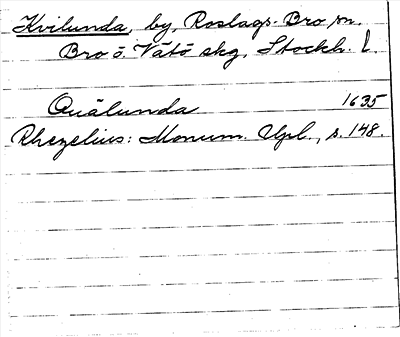 Kvilunda, by, Roslags-Bro sn.
Bro o. Vätö skg, Stockh. l.
Quälunda 1635
Rhezelius: Monum. Upl., s. 148.